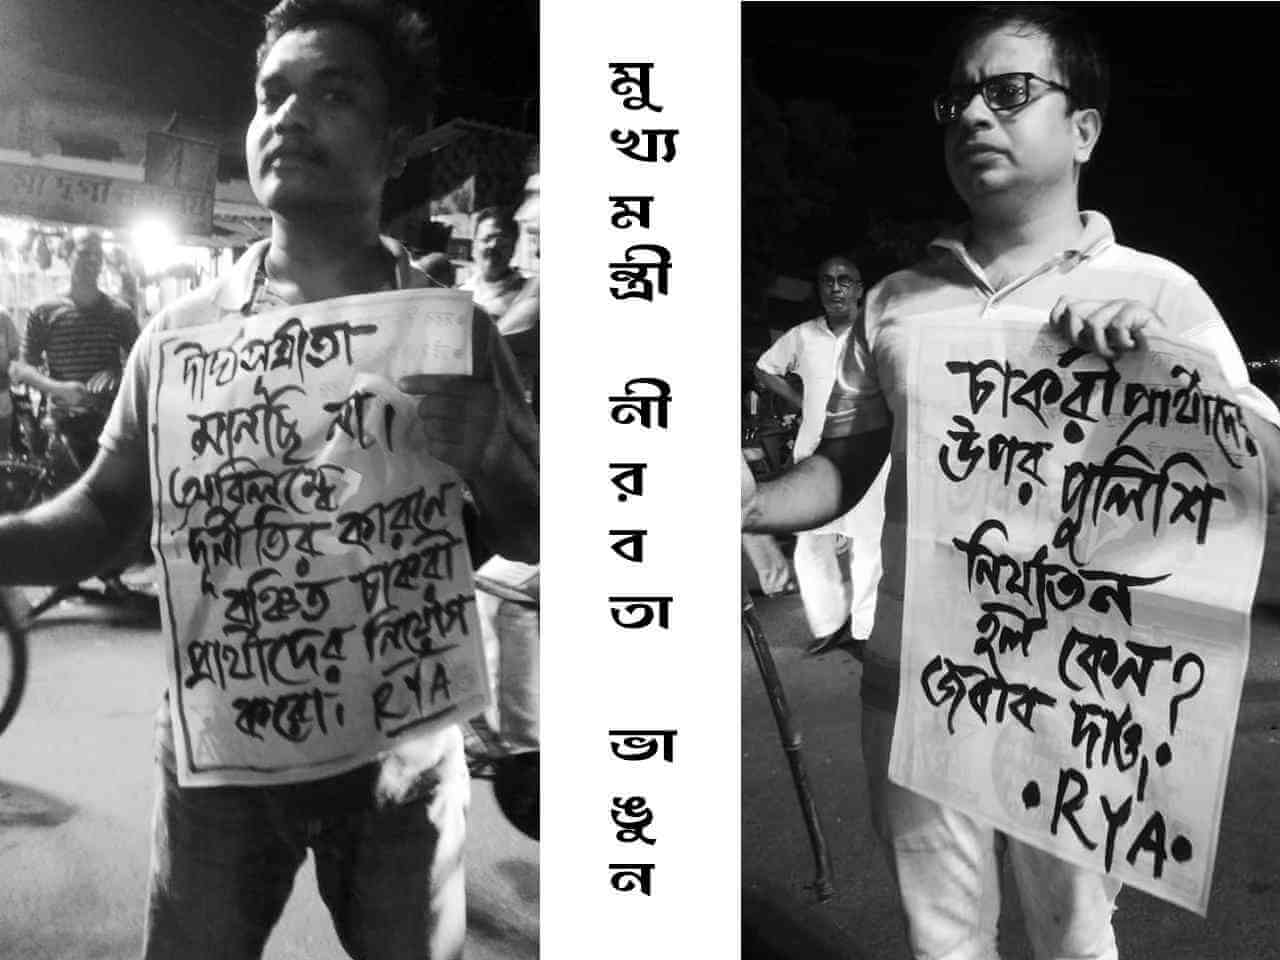 দীর্ঘসূত্রীতা
মানছি না।
অবিলম্বে
দূর্নীতির কারণে
বঞ্চিত চাকরী
প্রার্থীদের নিয়োগ
করো। RYA
মু
খ্য
ম
ন্ত্রী
নী
র
ব
তা
ভা
ঙু
ন
চাকরী প্রার্থীদের
উপর পুলিশি
নির্যাতন
হল কেন?
জবাব দাও।
• RYA •